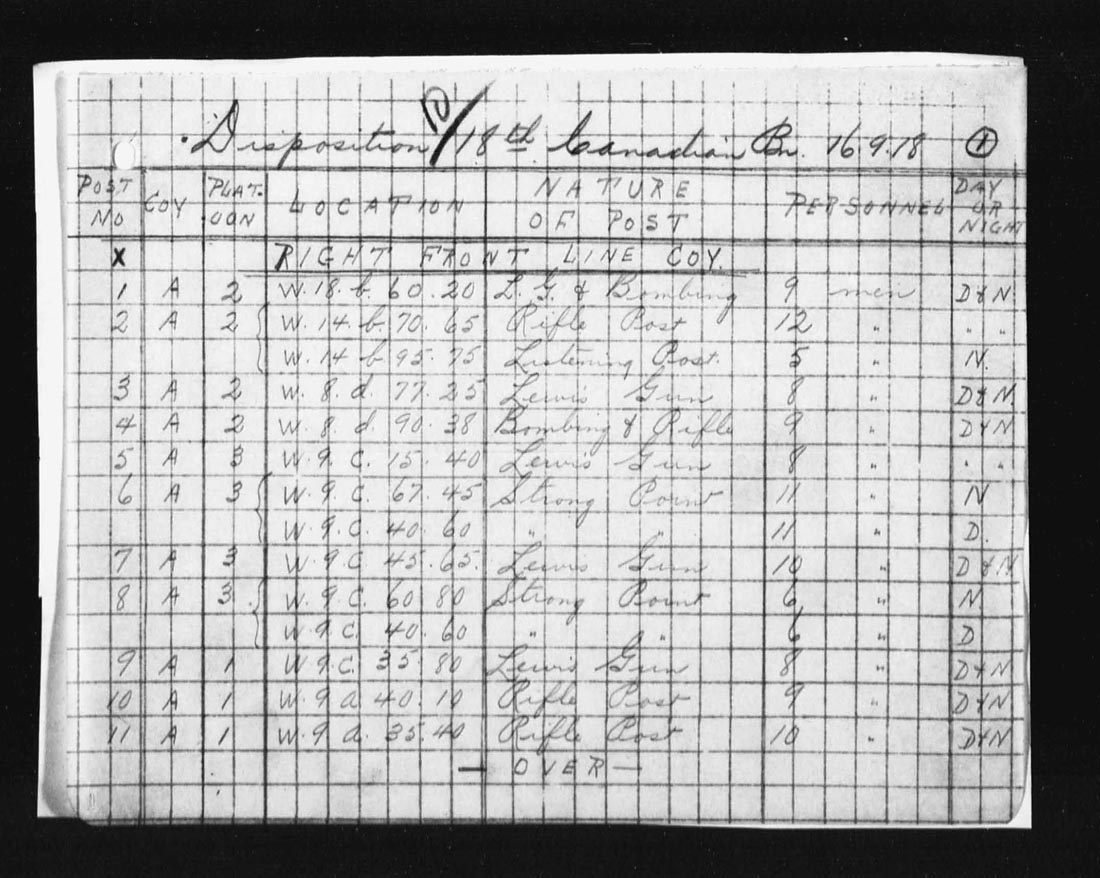 Disposition D/18th Canadian Bn. 16.9.18 1
POST NO COY PLAT-OON LOCATION NATURE OF POST PERSONNEL DAY OR NIGHT
X RIGHT FRONT LINE COY.
1 A 2 W. 18. b. 60. 20 L. G. & Bombing 9 men D & N.
2 A 2 { W. 14. b. 70. 65 Rifle Post 12 " " "
W. 14 b 95. 75 Listening Post. 5 " N.
3 A 2 W. 8. d. 77. 25 Lewis Gun 8 " D & N.
4 A 2 W. 8. d. 90. 38 Bombing & Rifle 9 " D & N
5 A 3 W. 9. C. 15. 40 Lewis Gun 8 " " "
6 A 3 { W. 9. C. 67. 45 Strong Point 11 " N
W. 9. C. 40. 60 " " 11 " D.
7 A 3 W. 9. C. 45. 65. Lewis Gun 10 " D & N
8 A 3 { W. 9. C. 60. 80 Strong Point 6 " N.
W. 9. C. 40. 60 " " 6 " D
9 A 1 W. 9. C. 35. 80 Lewis Gun 8 " D & N
10 A 1 W. 9 a 40. 10 Rifle Post 9 " D & N
11 A 1 W. 9 a. 35. 40 Rifle Post 10 " D & N
— OVER —